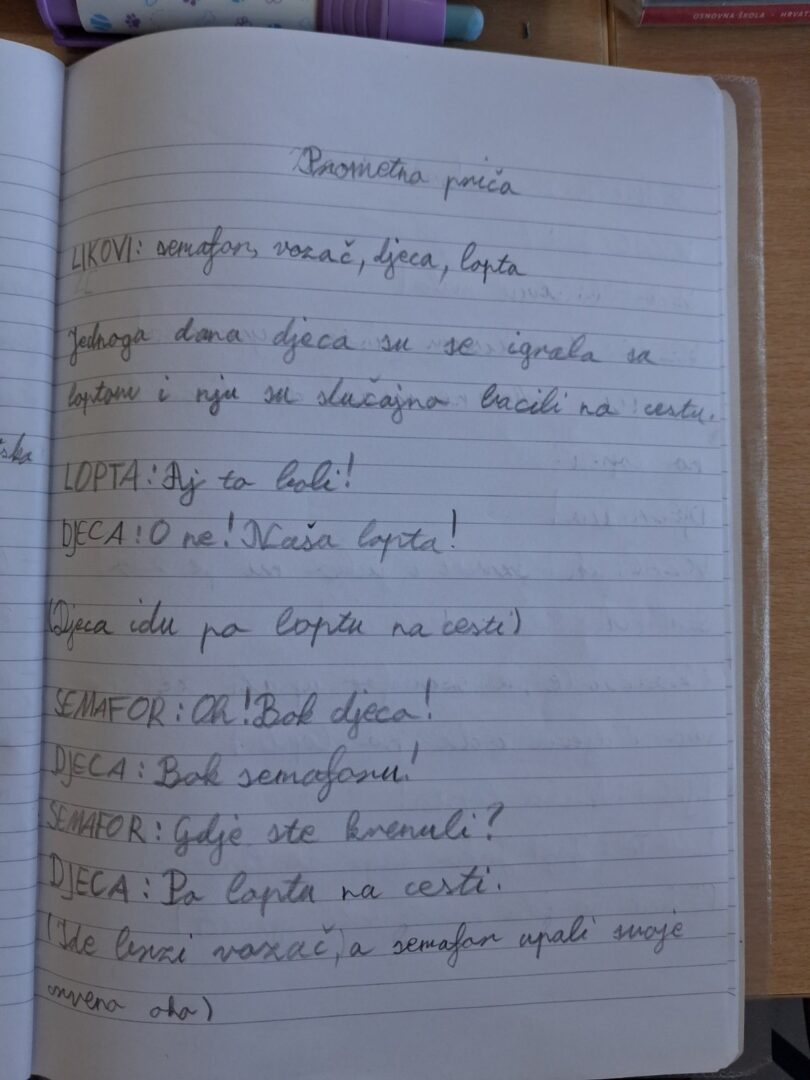 OSNOVNA ŠKOLA - HRVATS
Prometna priča
LIKOVI: semafor, vozač, djeca, lopta
Jednoga dana djeca su se igrala sa
loptom i nju su slučajno bacili na cestu.
LOPTA: Aj to boli!
DJECA: O ne! Naša lopta!
(Djeca idu po loptu na cesti)
SEMAFOR: Oh! Bok djeca!
DJECA: Bok semaforu!
SEMAFOR: Gdje ste krenuli?
DJECA: Po loptu na cesti.
(Ide brzi vozač, a semafor upali svoje
crveno oko)